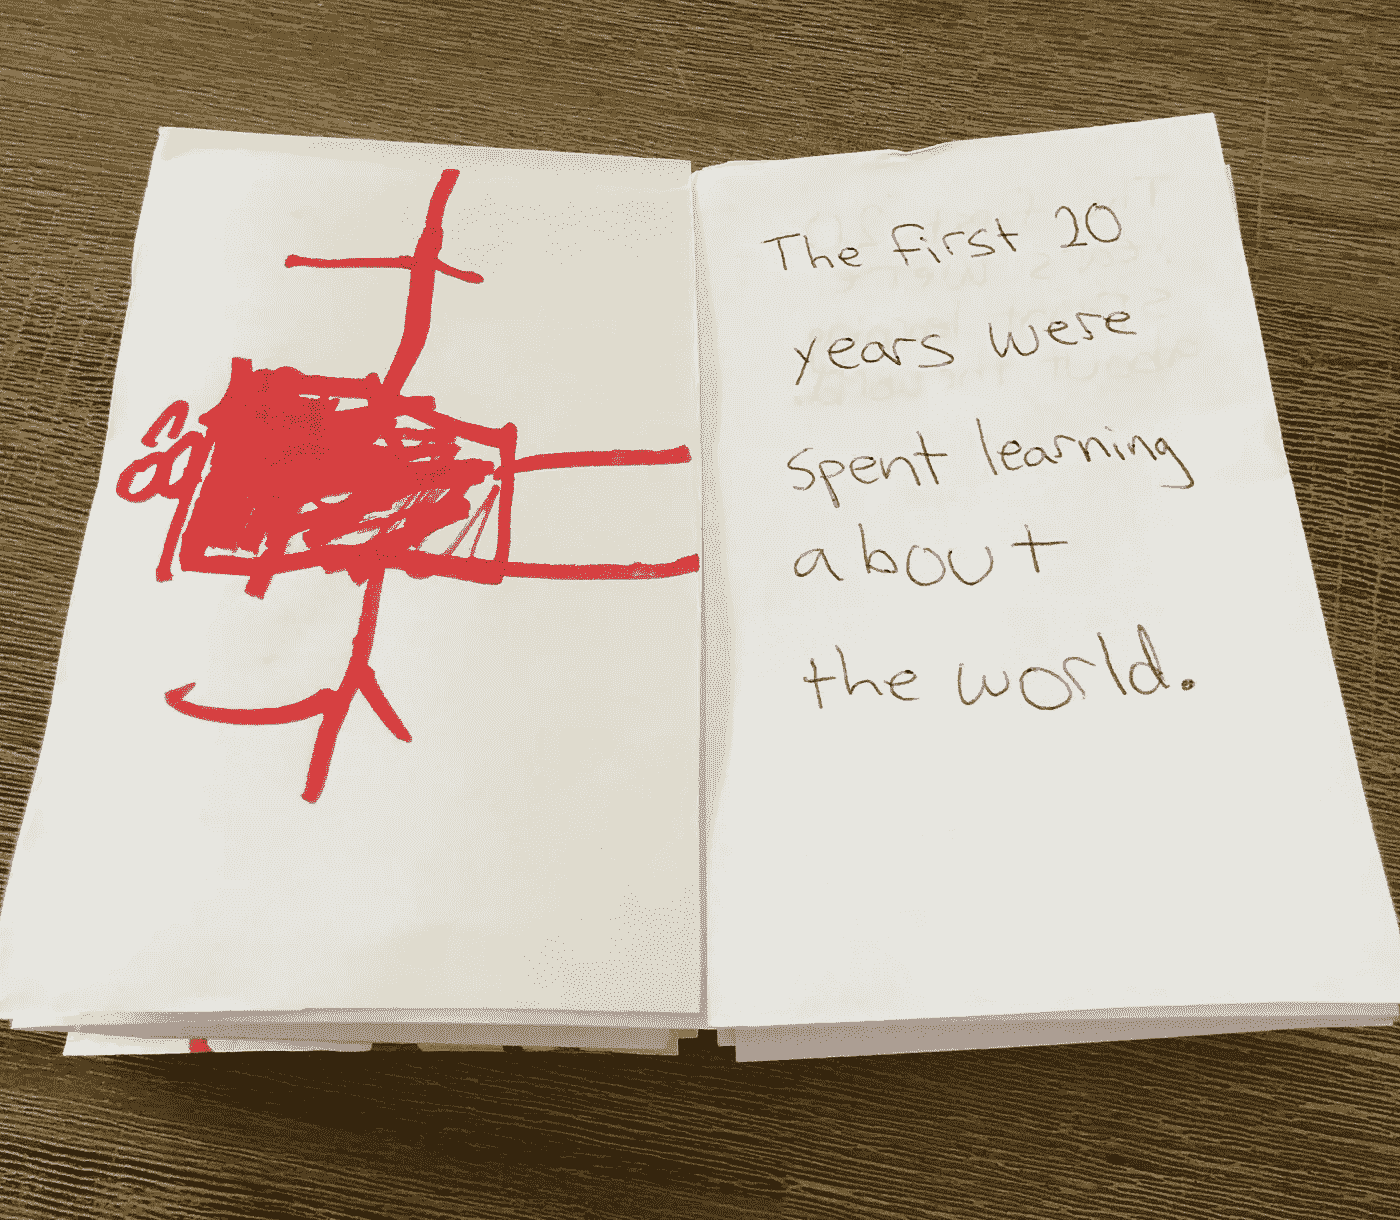 The first 20
years were
spent learning
about
the world.